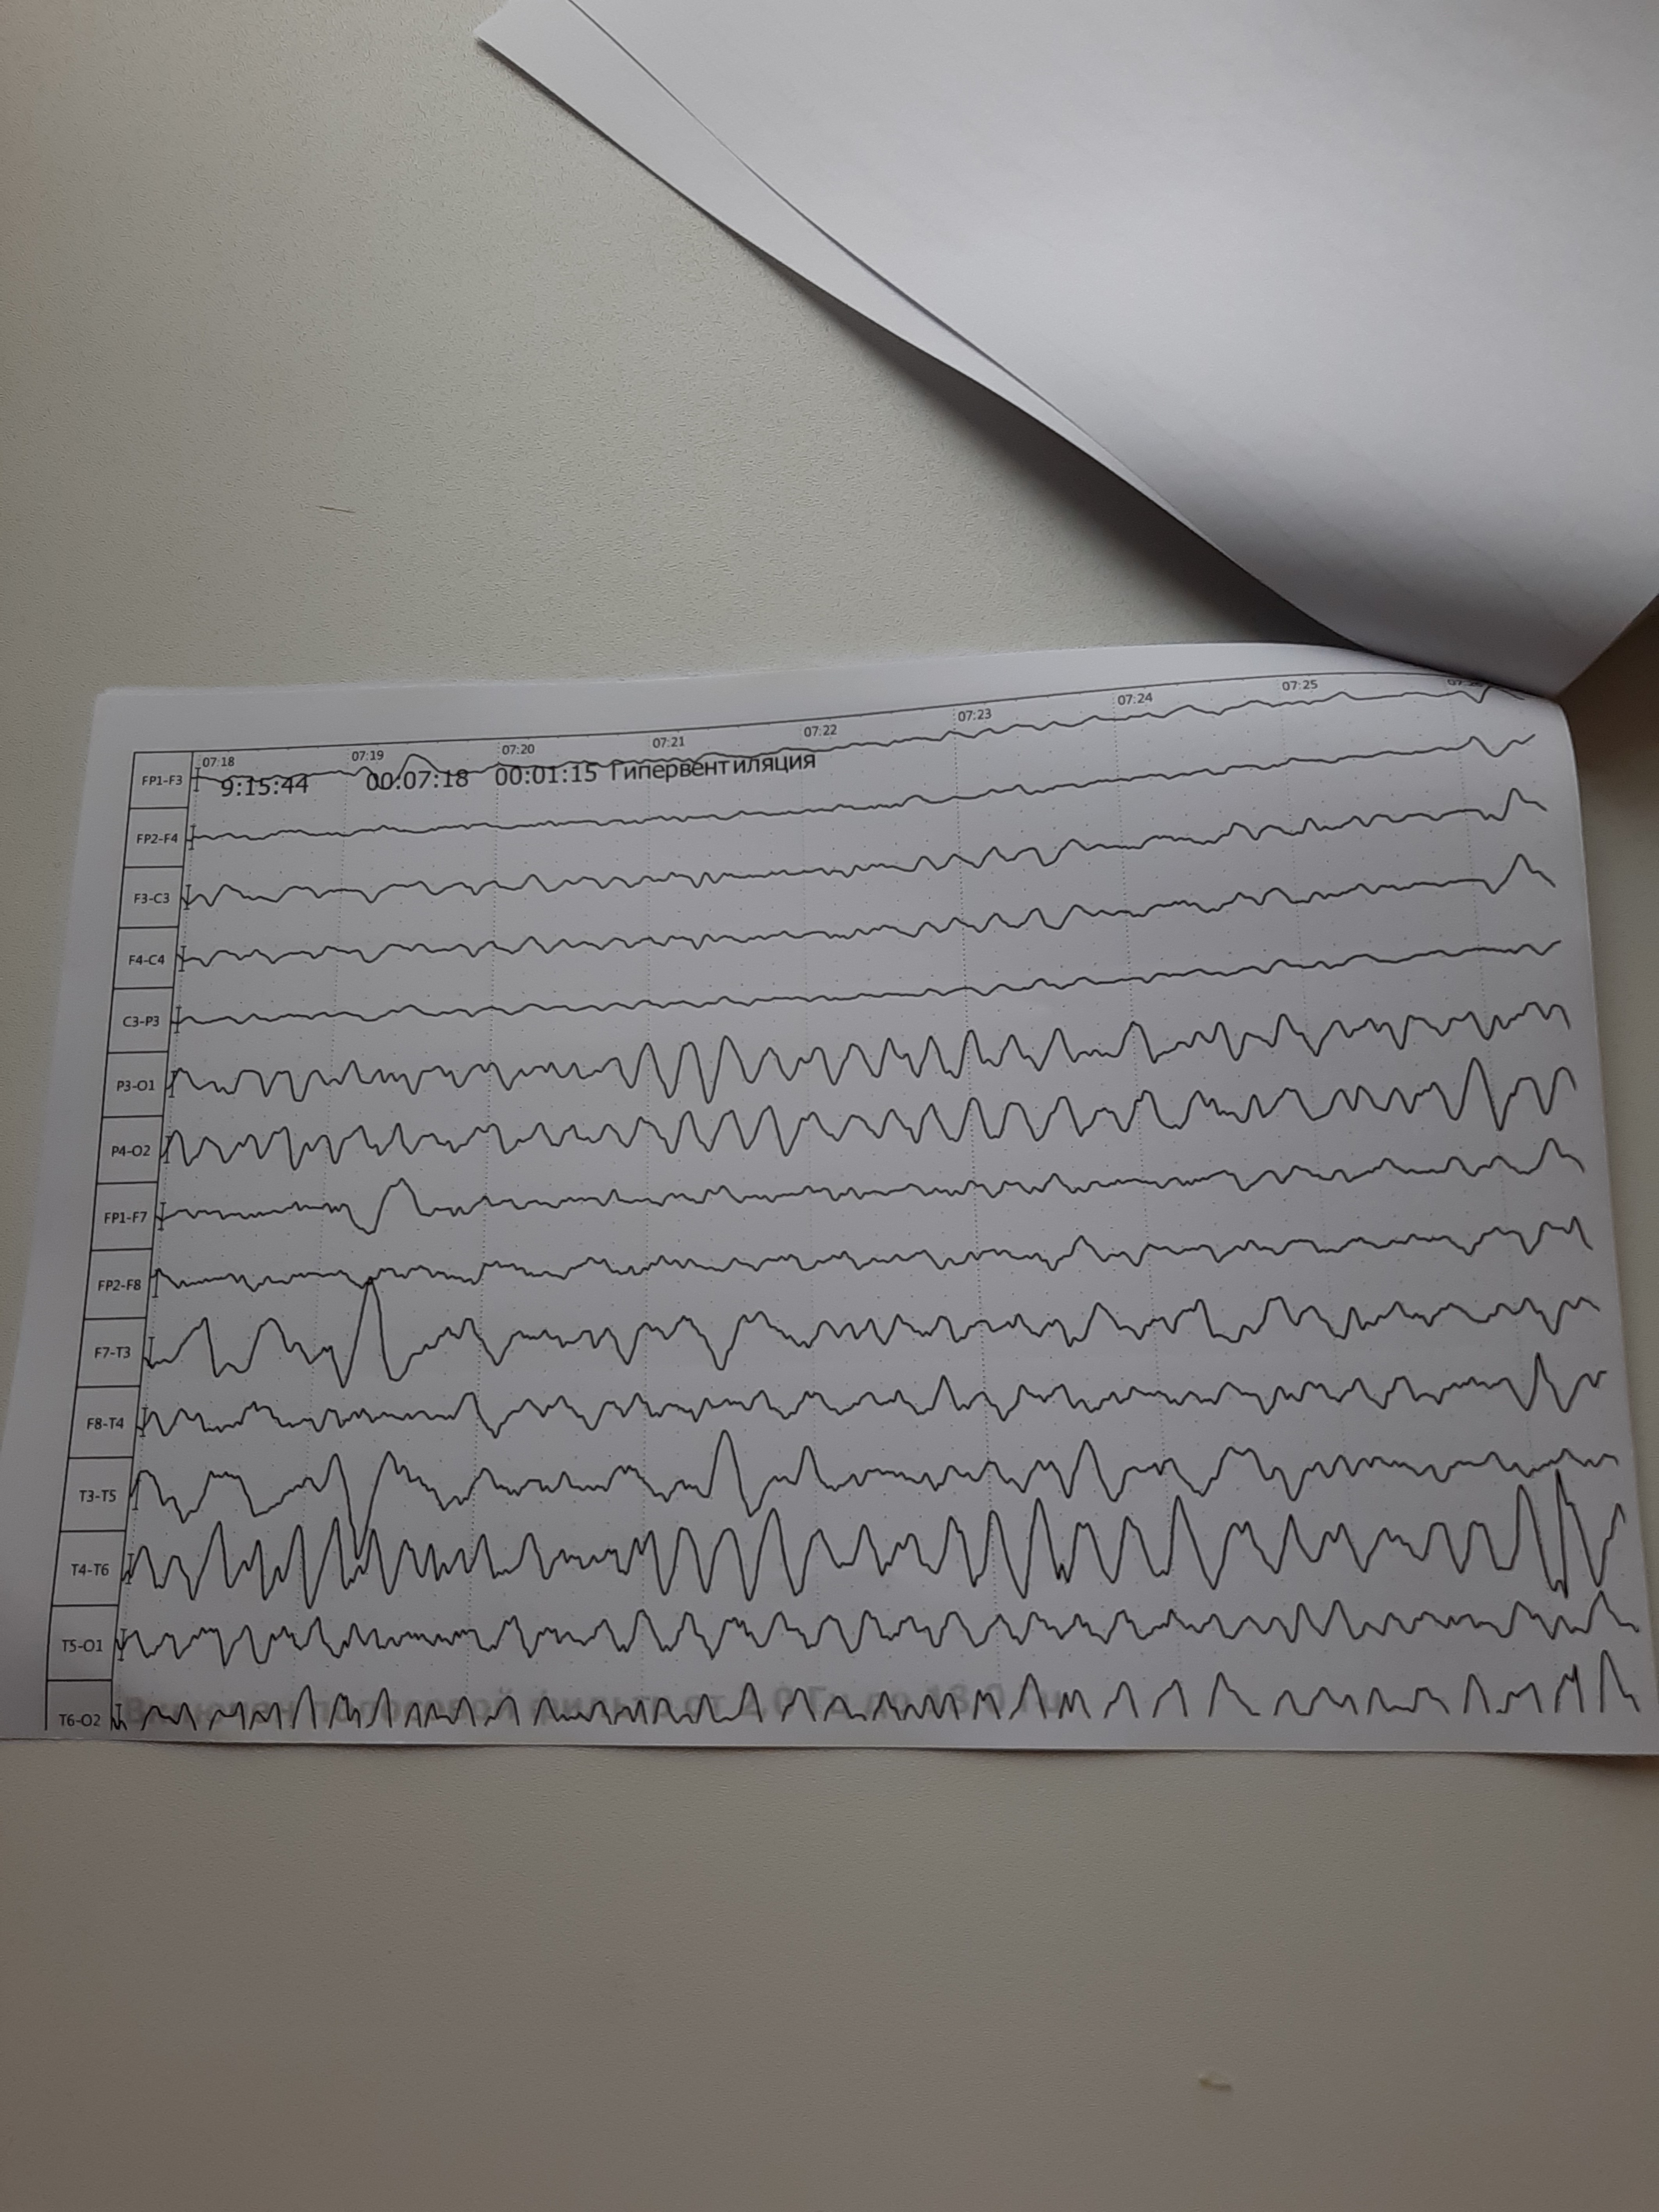 07:18 07:19 07:20 07:21 07:22 07:23 07:24 07:25
9:15:44 00:07:18 00:01:15 Гипервентиляция
FP1-F3
FP2-F4
F3-C3
F4-C4
C3-P3
P3-O1
P4-O2
FP1-F7
FP2-F8
F7-T3
F8-T4
T3-T5
T4-T6
T5-O1
T6-O2